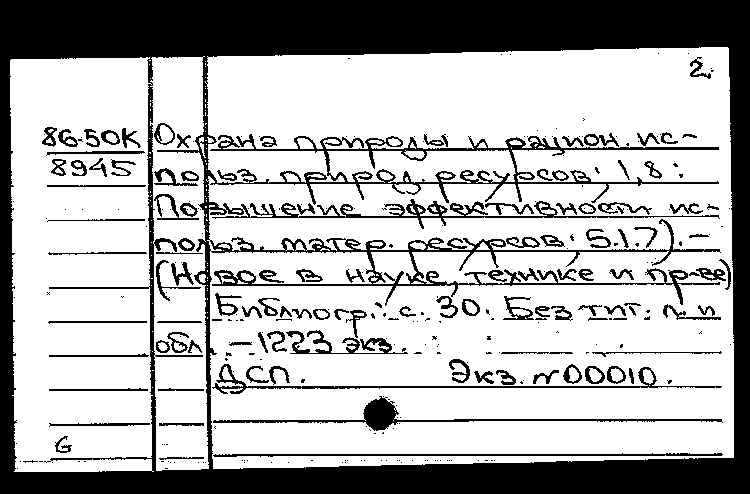 2.
86-50К Охрана природы и рацион. ис-
8945 польз. природ. ресурсов: 1,8:
Повышение эффективности ис-
польз. матер. ресурсов: 5.1.7). —
(Новое в науке, технике и пр-ве)
Библиогр.: с. 30. Без тит. л. и
обл. — 1223 экз.
ДСП. Экз. №00010.
G